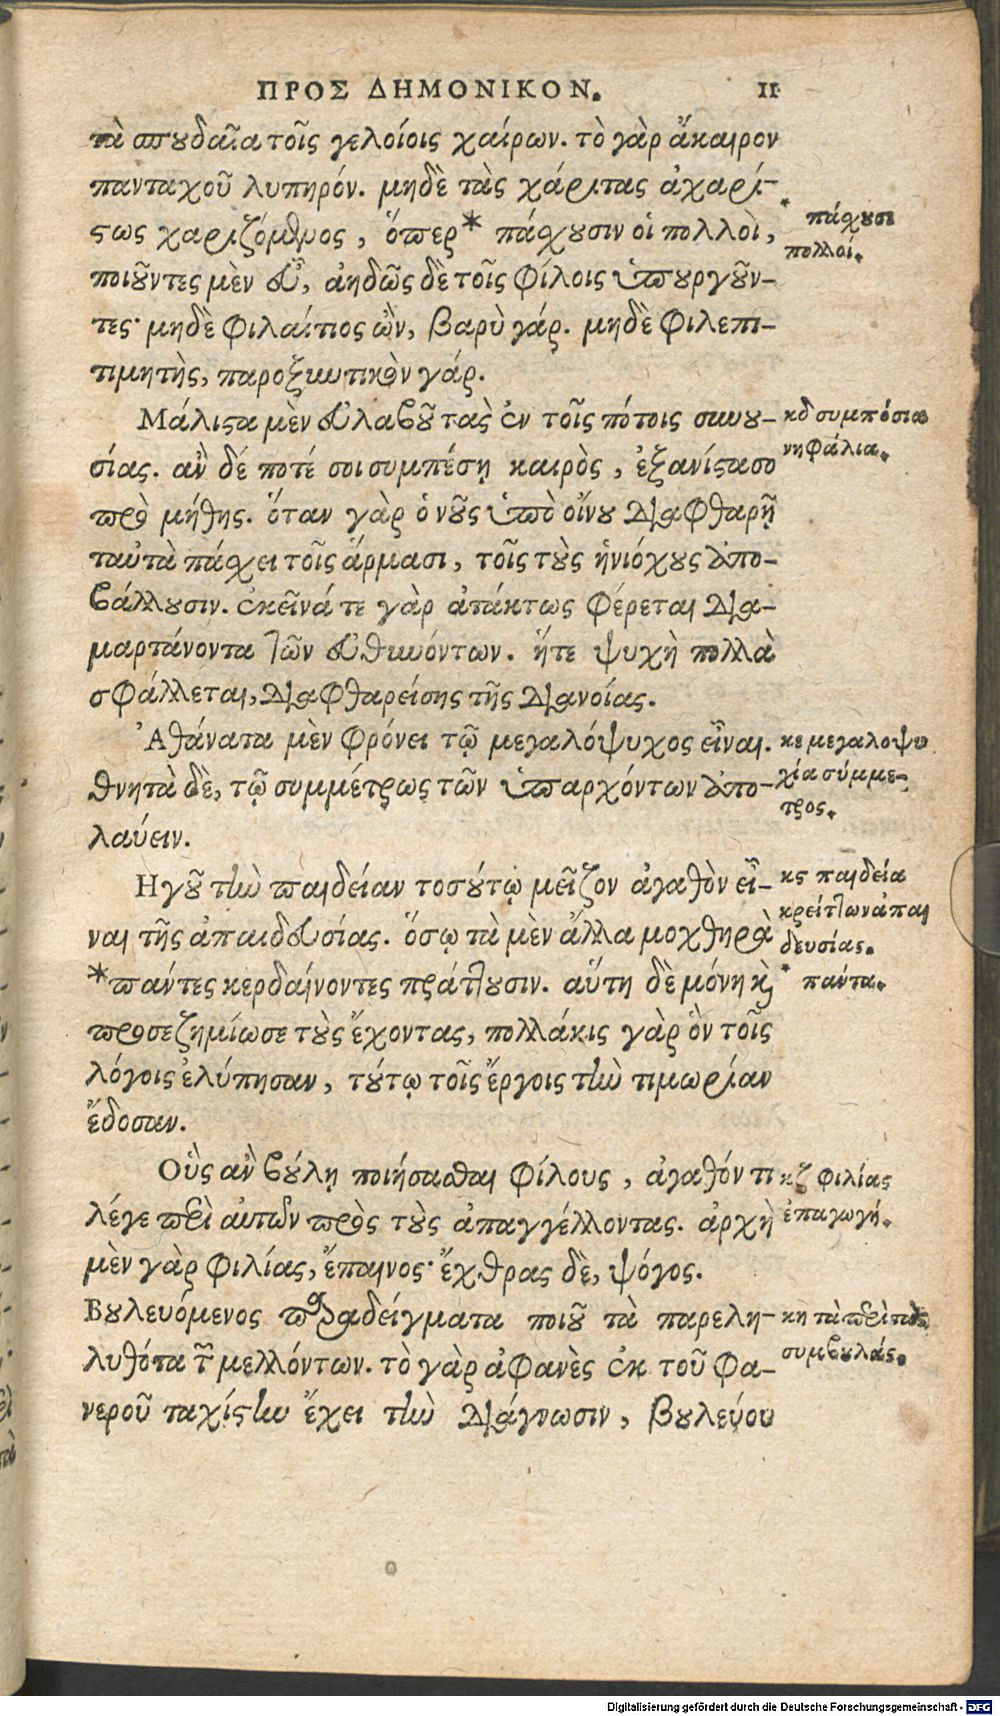 ΠΡΟΣ ΔΗΜΟΝΙΚΟΝ. 11
τὰ σπουδαῖα τοῖς γελοίοις χαίρων. τὸ γὰρ ἄκαιρον
πανταχοῦ λυπηρόν. μηδὲ τὰς χάριτας ἀχαρί-
στως χαριζόμενος, ὅπερ * πάσχουσιν οἱ πολλοὶ,
* πάσχουσι
πολλοί.
ποιοῦντες μὲν εὖ, ἀηδῶς δὲ τοῖς φίλοις ὑπουργοῦν-
τες· μηδὲ φιλαίτιος ὢν, βαρὺ γάρ. μηδὲ φιλεπι-
τιμητὴς, παροξυντικὸν γάρ.
Μάλιστα μὲν εὐλαβοῦ τὰς ἐν τοῖς πότοις συνου-
κδ συμπόσια
νηφάλια.
σίας. ἂν δέ ποτέ σοι συμπέσῃ καιρὸς, ἐξανίστασο
πρὸ μέθης. ὅταν γὰρ ὁ νοῦς ὑπὸ οἴνου διαφθαρῇ
ταὐτὰ πάσχει τοῖς ἅρμασι, τοῖς τοὺς ἡνιόχους ἀπο-
βάλλουσιν. ἐκεῖνά τε γὰρ ἀτάκτως φέρεται δια-
μαρτάνοντα τῶν εὐθυνόντων. ἥτε ψυχὴ πολλὰ
σφάλλεται, διαφθαρείσης τῆς διανοίας.
Ἀθάνατα μὲν φρόνει τῷ μεγαλόψυχος εἶναι.
κε μεγαλοψυ
χία σύμμε-
τρος.
θνητὰ δὲ, τῷ συμμέτρως τῶν ὑπαρχόντων ἀπο-
λαύειν.
Ηγοῦ τὴν παιδείαν τοσούτῳ μεῖζον ἀγαθὸν εἶ-
κς παιδεία
κρείττων ἀπαι
δευσίας.
ναι τῆς ἀπαιδευσίας. ὅσῳ τὰ μὲν ἄλλα μοχθηρὰ
* πάντες κερδαίνοντες πράττουσιν. αὕτη δὲ μόνη καὶ
* πάντα.
προσεζημίωσε τοὺς ἔχοντας, πολλάκις γὰρ ὃν τοῖς
λόγοις ἐλύπησαν, τούτῳ τοῖς ἔργοις τὴν τιμωρίαν
ἔδοσαν.
Οὓς ἂν βούλῃ ποιήσασθαι φίλους, ἀγαθόν τι
κζ φιλίας
ἐπαγωγή.
λέγε περὶ αὐτῶν πρὸς τοὺς ἀπαγγέλλοντας. ἀρχὴ
μὲν γὰρ φιλίας, ἔπαινος· ἔχθρας δὲ, ψόγος.
Βουλευόμενος παραδείγματα ποιοῦ τὰ παρελη-
κη τὰ περὶ τὰς
συμβουλάς.
λυθότα τῶν μελλόντων. τὸ γὰρ ἀφανὲς ἐκ τοῦ φα-
νεροῦ ταχίστην ἔχει τὴν διάγνωσιν, βουλεύου
Digitalisierung gefördert durch die Deutsche Forschungsgemeinschaft - DFG